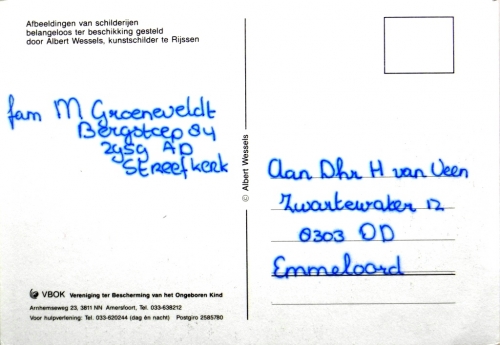 Afbeeldingen van schilderijen
belangeloos ter beschikking gesteld
door Albert Wessels, kunstschilder te Rijssen
fam M Groeneveldt
Bergstoep 84
2959 AD
Streefkerk
© Albert Wessels
Aan Dhr H van Veen
Zwartewater 12
8303 DD
Emmeloord
VBOK Vereniging ter Bescherming van het Ongeboren Kind
Arnhemseweg 23, 3811 NN Amersfoort, Tel. 033-638212
Voor hulpverlening: Tel. 033-620244 (dag én nacht) Postgiro 2585780